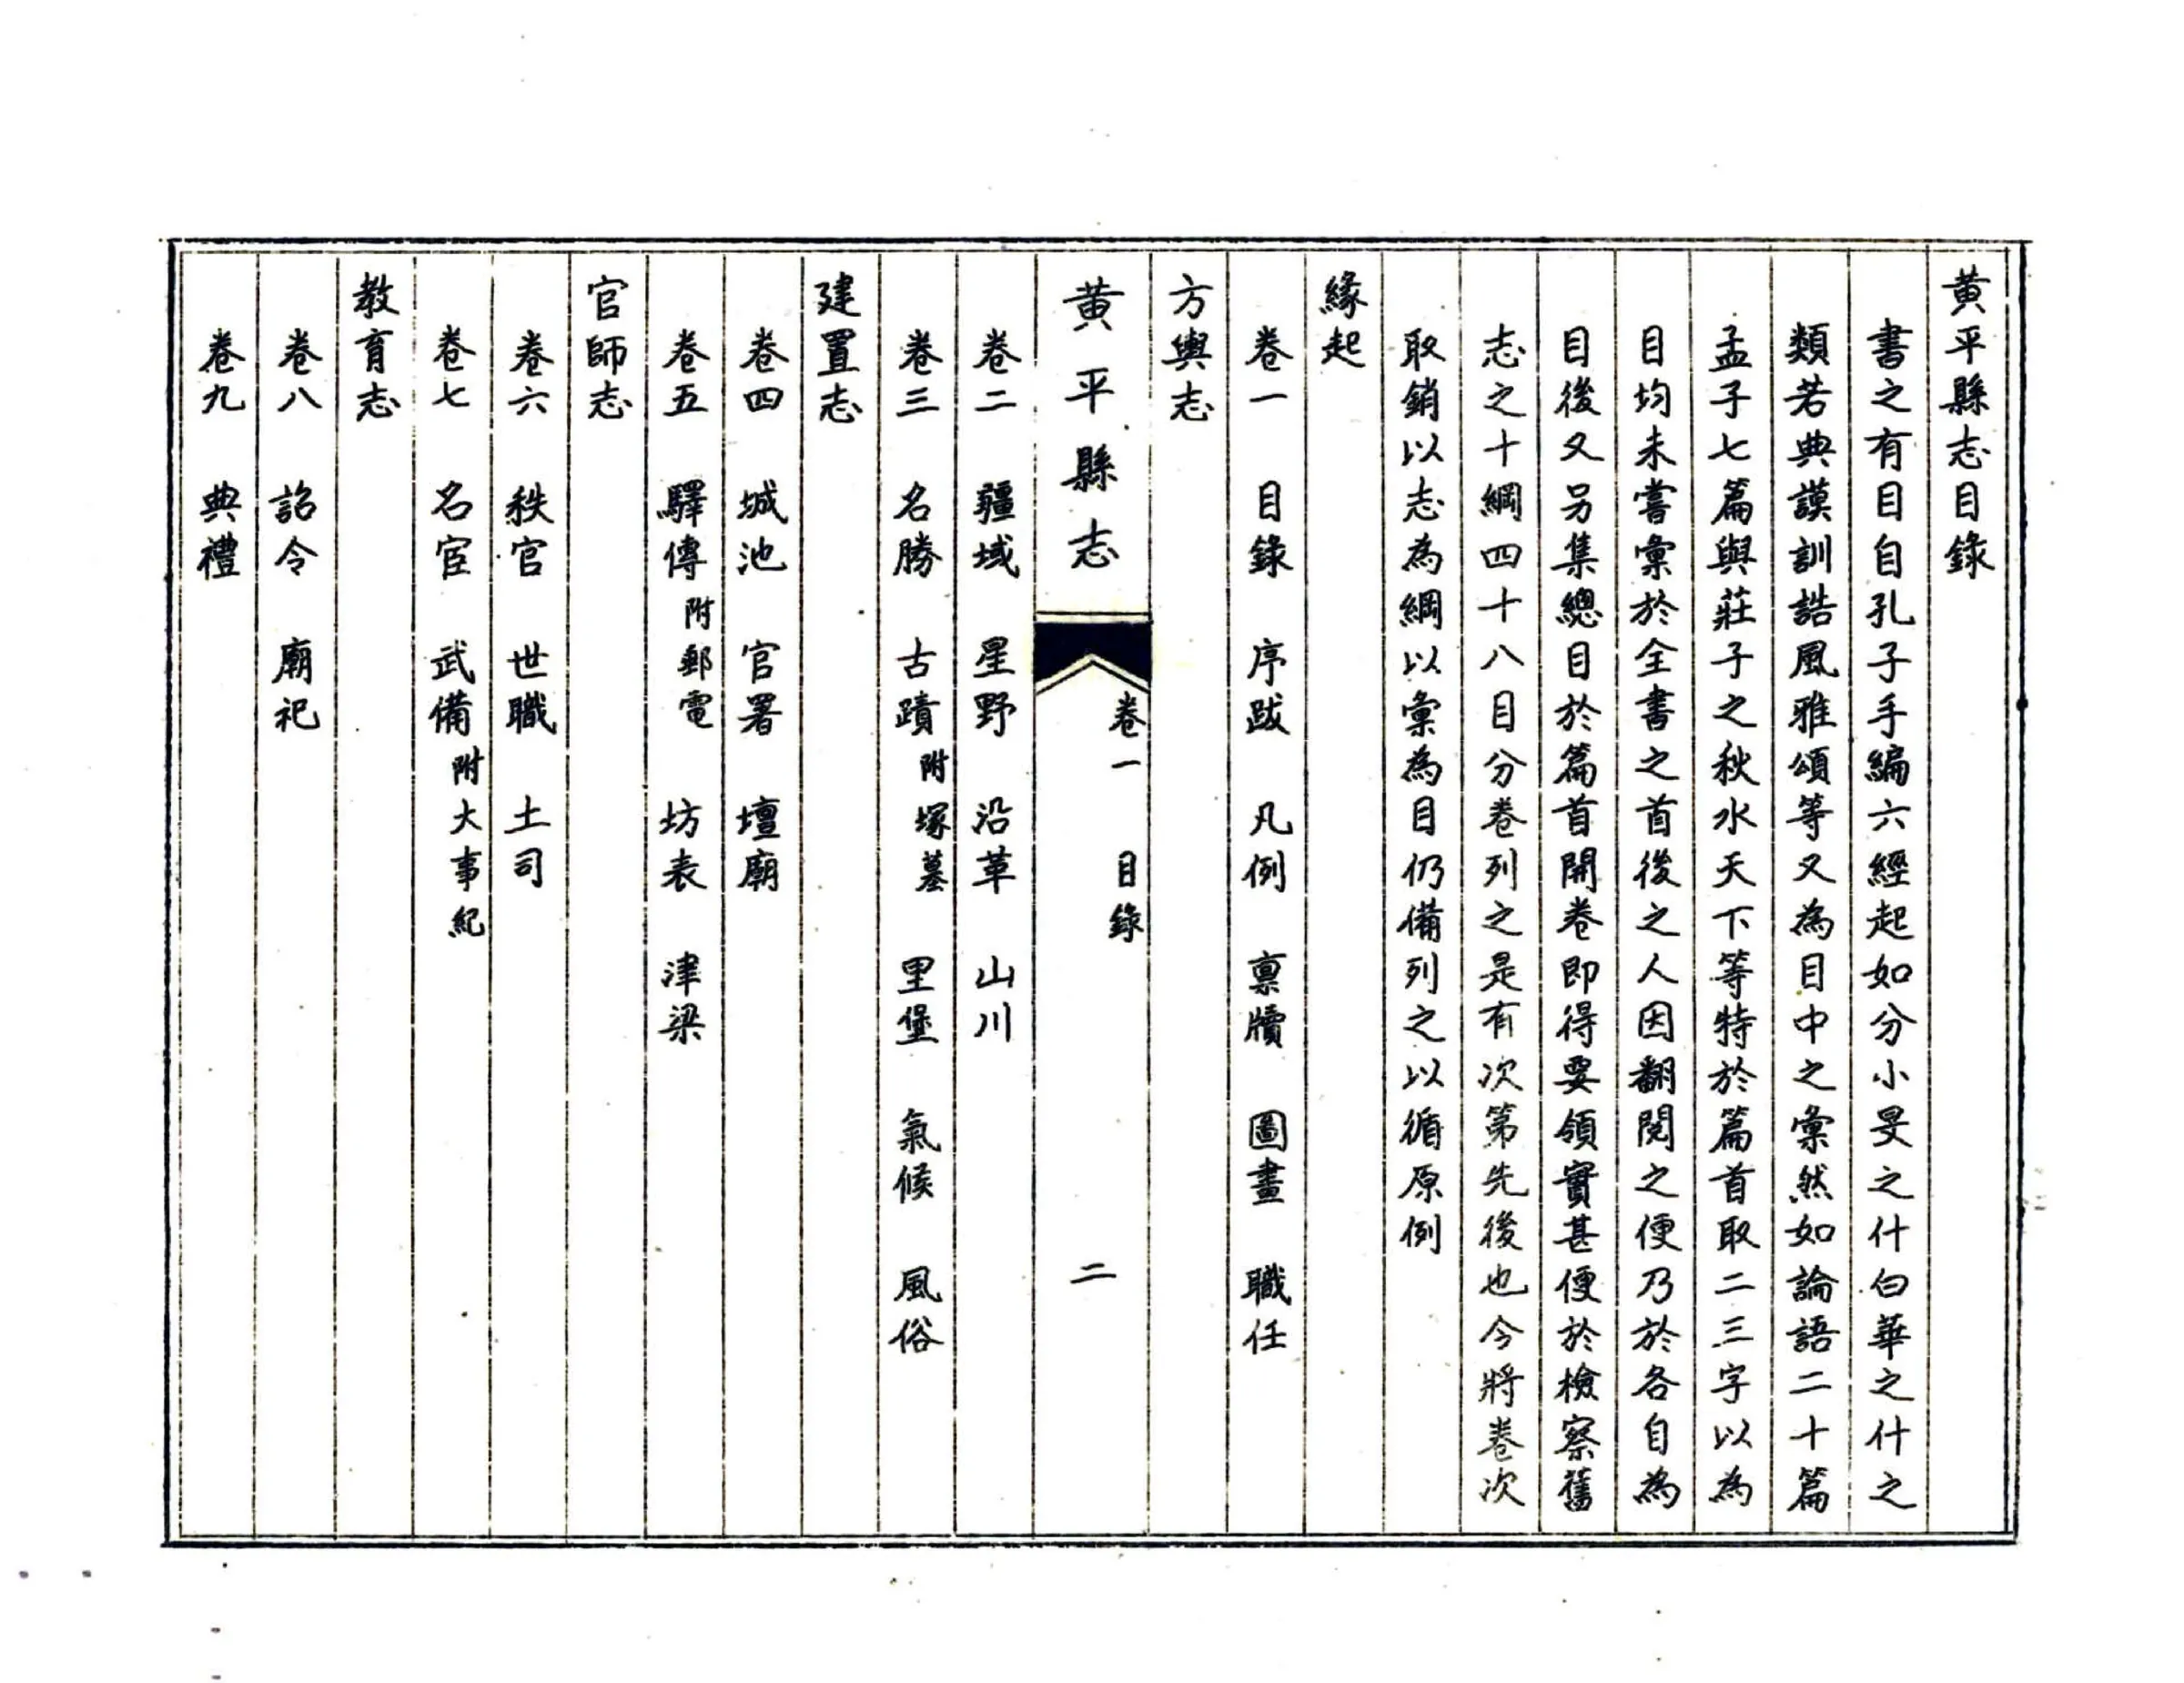 黃平縣志目錄
書之有目自孔子手編六經起如分小旻之什白華之什之
類若典謨訓誥風雅頌等又為目中之彙然如論語二十篇
孟子七篇與莊子之秋水天下等特於篇首取二三字以為
目均未嘗彙於全書之首後之人因翻閱之便乃於各自為
目後又另集總目於篇首開卷即得要領實甚便於檢察舊
志之十綱四十八目分卷列之是有次第先後也今將卷次
取銷以志為綱以彙為目仍備列之以循原例
緣起
卷一 目錄 序跋 凡例 稟牘 圖畫 職任
方輿志
黃平縣志 卷一 目錄 二
卷二 疆域 星野 沿革 山川
卷三 名勝 古蹟附塚墓 里堡 氣候 風俗
建置志
卷四 城池 官署 壇廟
卷五 驛傳附郵電 坊表 津梁
官師志
卷六 秩官 世職 土司
卷七 名宦 武備附大事紀
教育志
卷八 詔令 廟祀
卷九 典禮